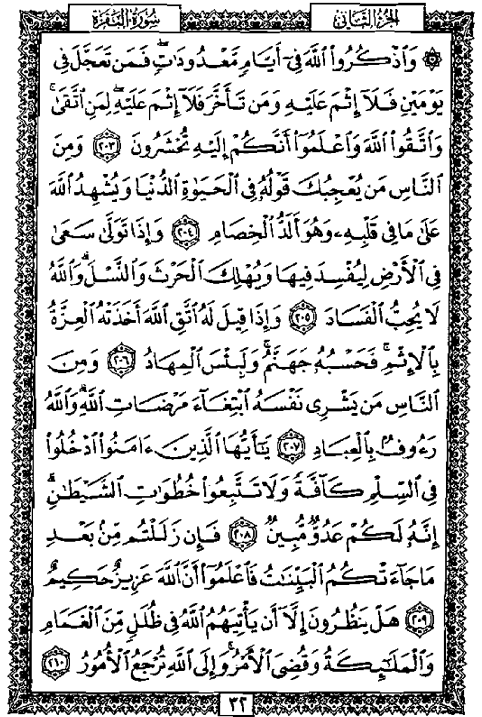 الجزء الثاني
سورة البقرة
۞ وَٱذۡكُرُواْ ٱللَّهَ فِيٓ أَيَّامٖ مَّعۡدُودَٰتٖۚ فَمَن تَعَجَّلَ فِي
يَوۡمَيۡنِ فَلَآ إِثۡمَ عَلَيۡهِ وَمَن تَأَخَّرَ فَلَآ إِثۡمَ عَلَيۡهِۖ لِمَنِ ٱتَّقَىٰۗ
وَٱتَّقُواْ ٱللَّهَ وَٱعۡلَمُوٓاْ أَنَّكُمۡ إِلَيۡهِ تُحۡشَرُونَ ٢٠٣ وَمِنَ
ٱلنَّاسِ مَن يُعۡجِبُكَ قَوۡلُهُۥ فِي ٱلۡحَيَوٰةِ ٱلدُّنۡيَا وَيُشۡهِدُ ٱللَّهَ
عَلَىٰ مَا فِي قَلۡبِهِۦ وَهُوَ أَلَدُّ ٱلۡخِصَامِ ٢٠٤ وَإِذَا تَوَلَّىٰ سَعَىٰ
فِي ٱلۡأَرۡضِ لِيُفۡسِدَ فِيهَا وَيُهۡلِكَ ٱلۡحَرۡثَ وَٱلنَّسۡلَۚ وَٱللَّهُ
لَا يُحِبُّ ٱلۡفَسَادَ ٢٠٥ وَإِذَا قِيلَ لَهُ ٱتَّقِ ٱللَّهَ أَخَذَتۡهُ ٱلۡعِزَّةُ
بِٱلۡإِثۡمِۚ فَحَسۡبُهُۥ جَهَنَّمُۖ وَلَبِئۡسَ ٱلۡمِهَادُ ٢٠٦ وَمِنَ
ٱلنَّاسِ مَن يَشۡرِي نَفۡسَهُ ٱبۡتِغَآءَ مَرۡضَاتِ ٱللَّهِۚ وَٱللَّهُ
رَءُوفُۢ بِٱلۡعِبَادِ ٢٠٧ يَٰٓأَيُّهَا ٱلَّذِينَ ءَامَنُواْ ٱدۡخُلُواْ
فِي ٱلسِّلۡمِ كَآفَّةٗ وَلَا تَتَّبِعُواْ خُطُوَٰتِ ٱلشَّيۡطَٰنِۚ
إِنَّهُۥ لَكُمۡ عَدُوّٞ مُّبِينٞ ٢٠٨ فَإِن زَلَلۡتُم مِّنۢ بَعۡدِ
مَا جَآءَتۡكُمُ ٱلۡبَيِّنَٰتُ فَٱعۡلَمُوٓاْ أَنَّ ٱللَّهَ عَزِيزٌ حَكِيمٌ
٢٠٩ هَلۡ يَنظُرُونَ إِلَّآ أَن يَأۡتِيَهُمُ ٱللَّهُ فِي ظُلَلٖ مِّنَ ٱلۡغَمَامِ
وَٱلۡمَلَٰٓئِكَةُ وَقُضِيَ ٱلۡأَمۡرُۚ وَإِلَى ٱللَّهِ تُرۡجَعُ ٱلۡأُمُورُ ٢١٠
٣٢